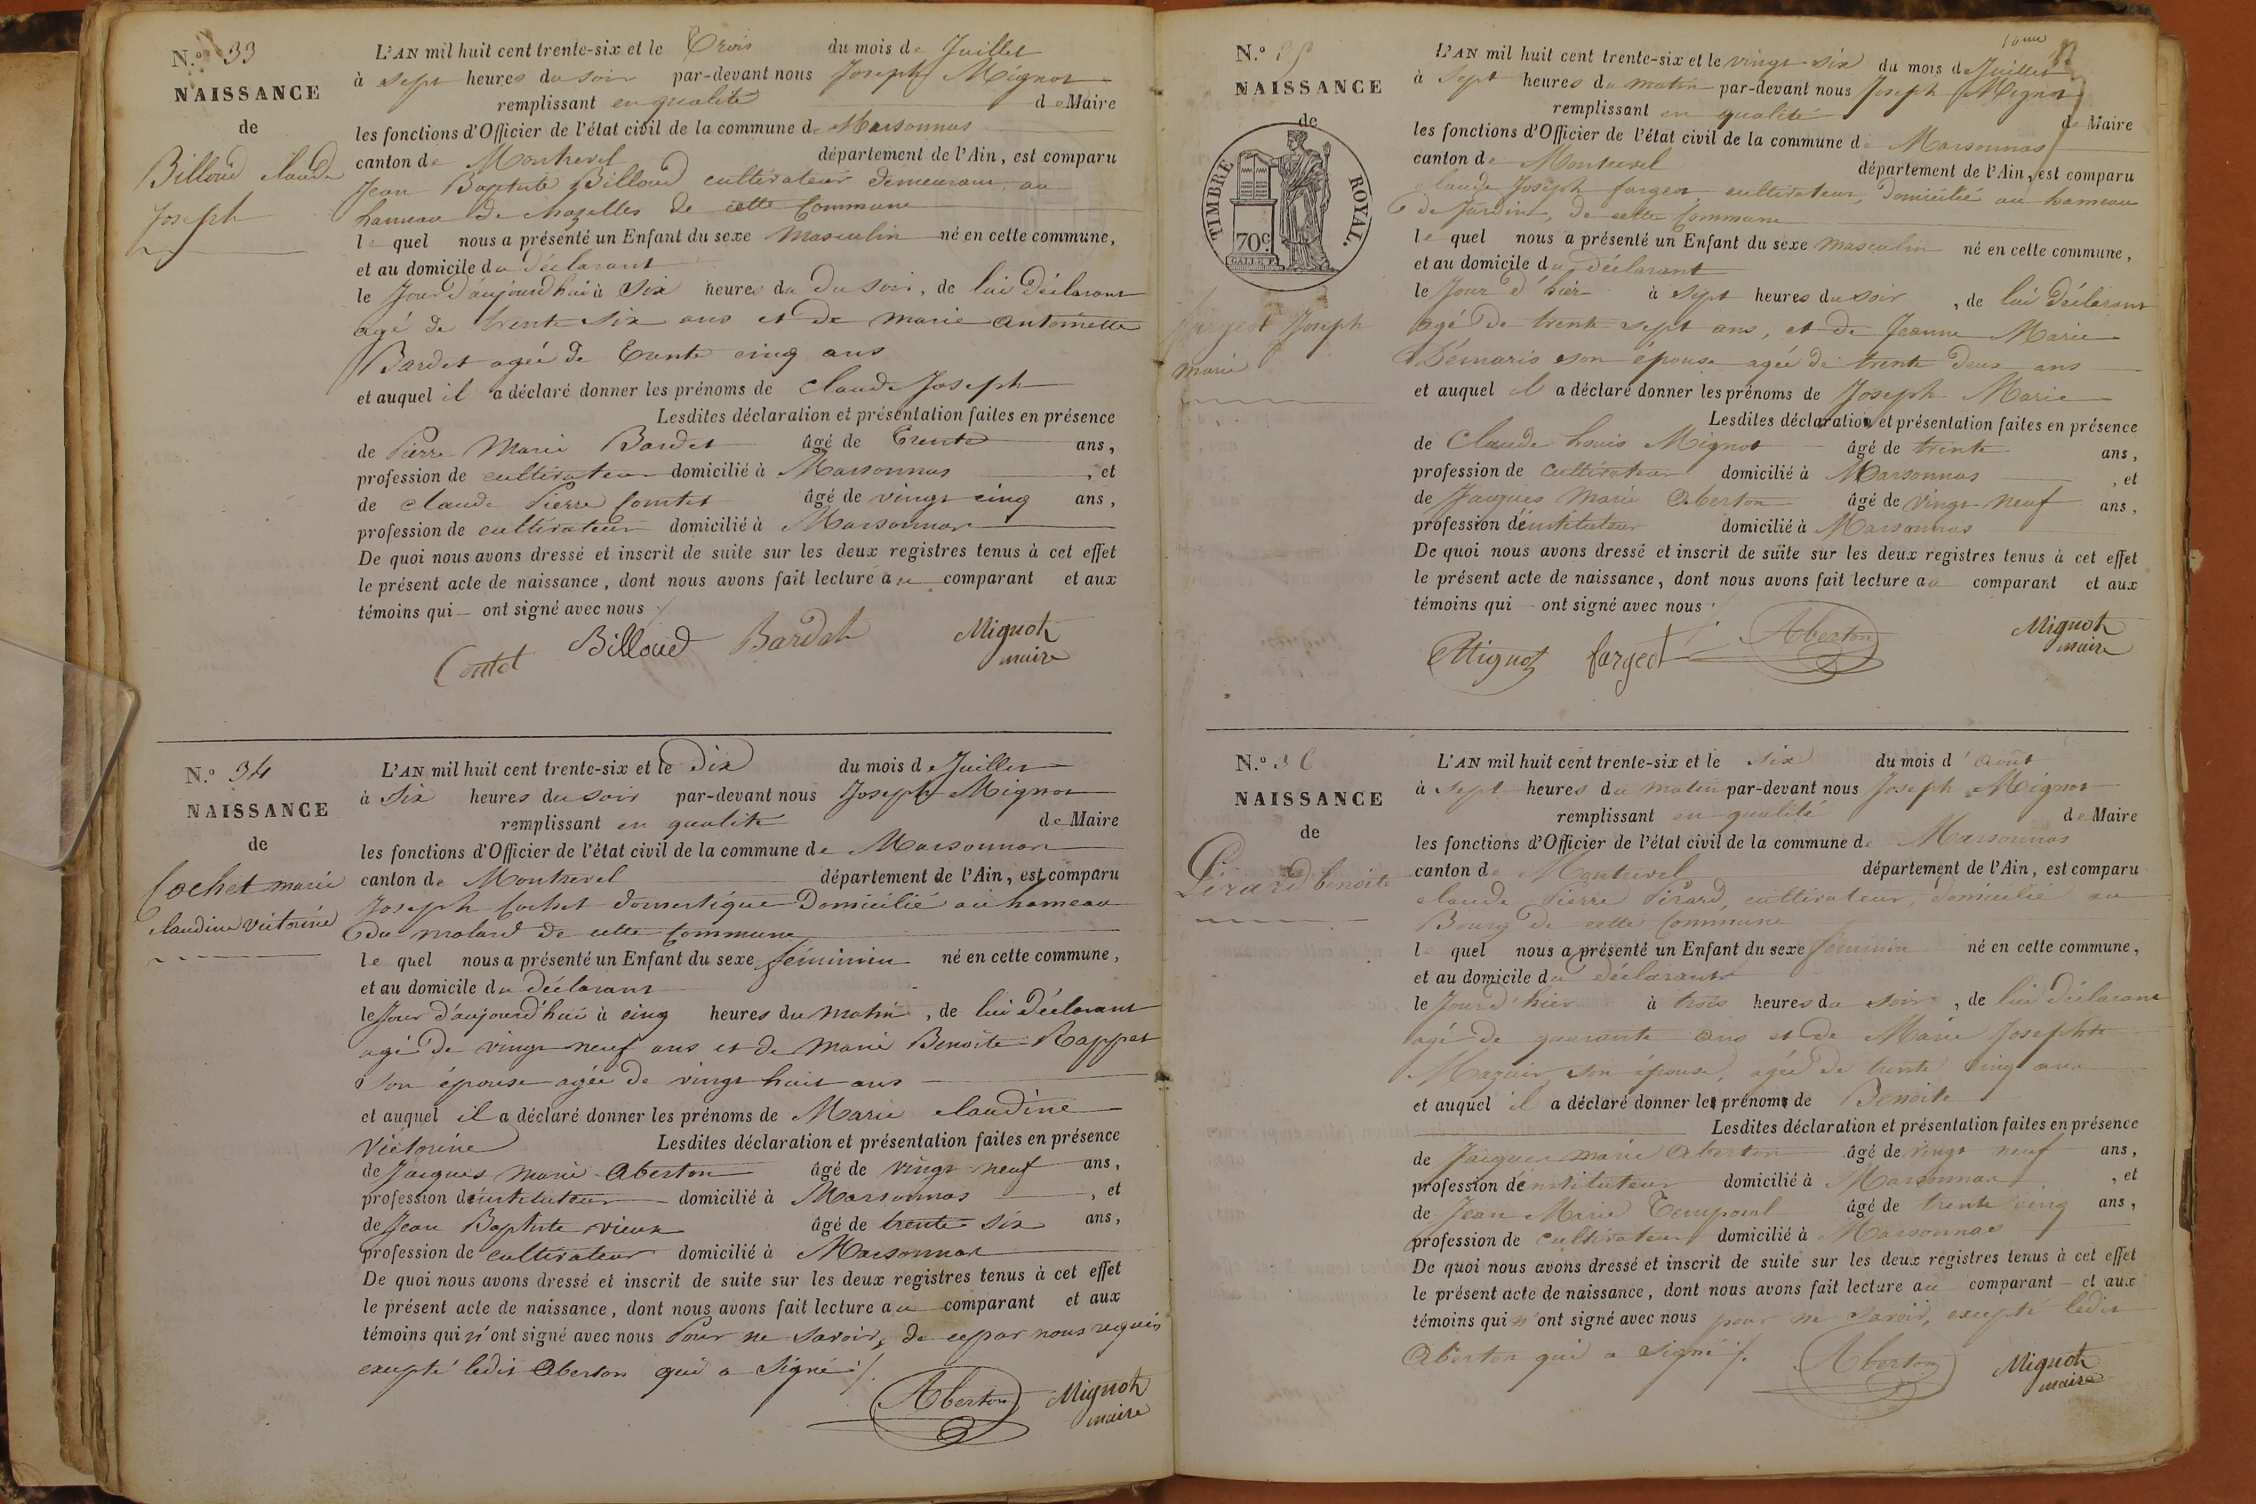 N.º 33
NAISSANCE
de
Billoud claude
Joseph
L'AN mil huit cent trente-six et le Trois du mois de Juillet
à sept heures du soir par-devant nous Joseph Mignot
remplissant en qualité de Maire
les fonctions d'Officier de l'état civil de la commune de Marsonnas
canton de Montrevel département de l'Ain, est comparu
Jean Baptiste Billoud cultivateur demeurant au
hameau de chazelles de cette Commune
le quel nous a présenté un Enfant du sexe masculin né en cette commune,
et au domicile du déclarant
le Jour d'aujourd'hui à Six heures du du soir, de lui déclarant
agé de trente six ans et de marie antoinette
Bardet agée de Trente cinq ans
et auquel il a déclaré donner les prénoms de claude Joseph
Lesdites déclaration et présentation faites en présence
de Pierre Marie Bardet âgé de Trente ans,
profession de cultivateur domicilié à Marsonnas, et
de claude Pierre Comtet âgé de vingt cinq ans,
profession de cultivateur domicilié à Marsonnas
De quoi nous avons dressé et inscrit de suite sur les deux registres tenus à cet effet
le présent acte de naissance, dont nous avons fait lecture au comparant et aux
témoins qui ont signé avec nous
Contet Billoud Bardet Mignot
maire
N.º 34
NAISSANCE
de
Cochet marie
claudine victorine
L'AN mil huit cent trente-six et le Dix du mois de Juillet
à Six heures du soir par-devant nous Joseph Mignot
remplissant en qualité de Maire
les fonctions d'Officier de l'état civil de la commune de Marsonnas
canton de Montrevel département de l'Ain, est comparu
Joseph Cochet domestique Domicilié au hameau
du molard de cette Commune
le quel nous a présenté un Enfant du sexe féminin né en cette commune,
et au domicile du déclarant
le Jour d'aujourd'hui à cinq heures du matin, de lui déclarant
agé de vingt neuf ans et de Marie Benoite Rappet
son épouse agée de vingt huit ans
et auquel il a déclaré donner les prénoms de Marie claudine
Victorine Lesdites déclaration et présentation faites en présence
de Jacques marie Aberton âgé de vingt neuf ans,
profession d'instituteur domicilié à Marsonnas, et
de Jean Baptiste vieux âgé de trente six ans,
profession de cultivateur domicilié à Marsonnas
De quoi nous avons dressé et inscrit de suite sur les deux registres tenus à cet effet
le présent acte de naissance, dont nous avons fait lecture au comparant et aux
témoins qui n'ont signé avec nous Pour ne savoir, de ce par nous requis
excepté ledit Aberton qui a signé
Aberton Mignot
maire
10me
N.º 35
NAISSANCE
de
TIMBRE ROYAL.
70c.
fargeot Joseph
marie
L'AN mil huit cent trente-six et le vingt six du mois de Juillet
à Sept heures du matin par-devant nous Joseph Mignot
remplissant en qualité de Maire
les fonctions d'Officier de l'état civil de la commune de Marsonnas
canton de Montrevel département de l'Ain, est comparu
claude Joseph fargeot cultivateur, domicilié au hameau
de Jardins de cette Commune
le quel nous a présenté un Enfant du sexe masculin né en cette commune,
et au domicile du déclarant
le Jour d'hier à sept heures du soir, de lui déclarant
agé de trente sept ans, et de Jeanne Marie
Démaris son épouse agée de trente deux ans
et auquel il a déclaré donner les prénoms de Joseph Marie
Lesdites déclaration et présentation faites en présence
de Claude Louis Mignot âgé de trente ans,
profession de cultivateur domicilié à Marsonnas, et
de Jacques Marie Aberton âgé de vingt neuf ans,
profession d'instituteur domicilié à Marsonnas
De quoi nous avons dressé et inscrit de suite sur les deux registres tenus à cet effet
le présent acte de naissance, dont nous avons fait lecture au comparant et aux
témoins qui ont signé avec nous
Mignot fargeot Aberton Mignot
maire
N.º 36
NAISSANCE
de
Pirard benoite
L'AN mil huit cent trente-six et le six du mois d'août
à sept heures du matin par-devant nous Joseph Mignot
remplissant en qualité de Maire
les fonctions d'Officier de l'état civil de la commune de Marsonnas
canton de Montrevel département de l'Ain, est comparu
claude Pierre Pirard, cultivateur, domicilié au
Bourg de cette Commune
le quel nous a présenté un Enfant du sexe féminin né en cette commune,
et au domicile du déclarant
le Jour d'hier à trois heures du soir, de lui déclarant
agé de quarante ans et de Marie Josephte
son épouse, agée de trente cinq ans
et auquel il a déclaré donner les prénoms de Benoite
Lesdites déclaration et présentation faites en présence
de Jacques marie Aberton âgé de vingt neuf ans,
profession d'instituteur domicilié à Marsonnas, et
de Jean Marie Temporal âgé de trente cinq ans,
profession de cultivateur domicilié à Marsonnas
De quoi nous avons dressé et inscrit de suite sur les deux registres tenus à cet effet
le présent acte de naissance, dont nous avons fait lecture au comparant et aux
témoins qui n'ont signé avec nous pour ne savoir, excepté ledit
Aberton qui a signé
Aberton Mignot
maire